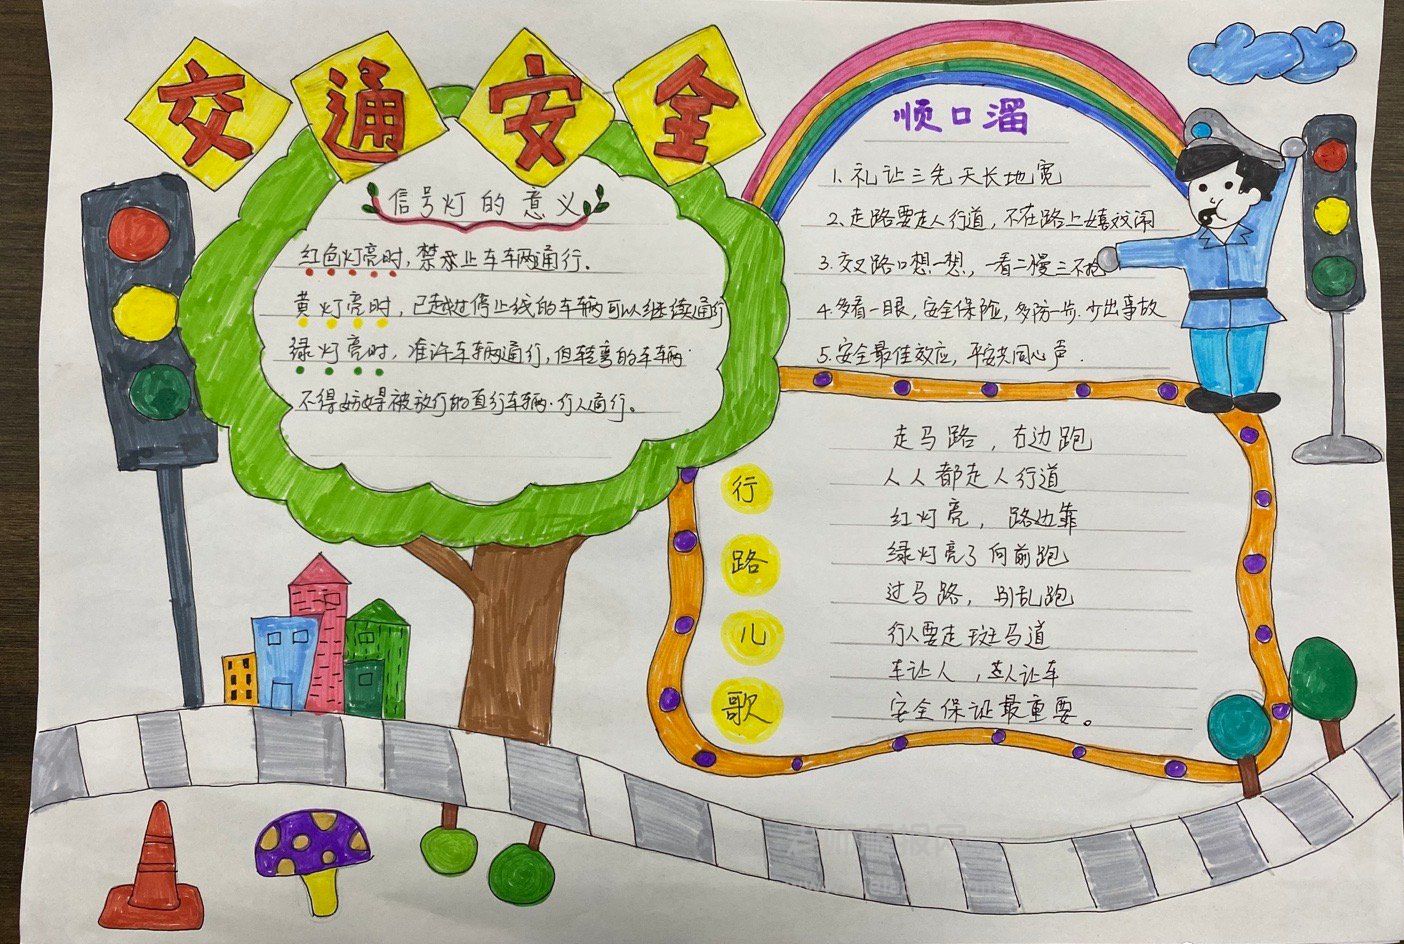 交通安全
信号灯的意义
红色灯亮时,禁示止车车辆通行。
黄灯亮时,已越过停止线的车辆可以继续通行
绿灯亮时,准许车辆通行,但转弯的车辆
不得妨碍被放行的直行车辆.行人通行。
顺口溜
1.礼让三先天长地宽
2.走路要走人行道,不在路上嬉戏闹
3.交叉路口想一想,一看二慢三不抢
4.多看一眼,安全保险,多防一步.少出事故
5.安全最佳效应,平安共同心声.
行路儿歌
走马路,右边跑
人人都走人行道
红灯亮,路边靠
绿灯亮了向前跑
过马路,别乱跑
行人要走斑马道
车让人,人让车
安全保证最重要。